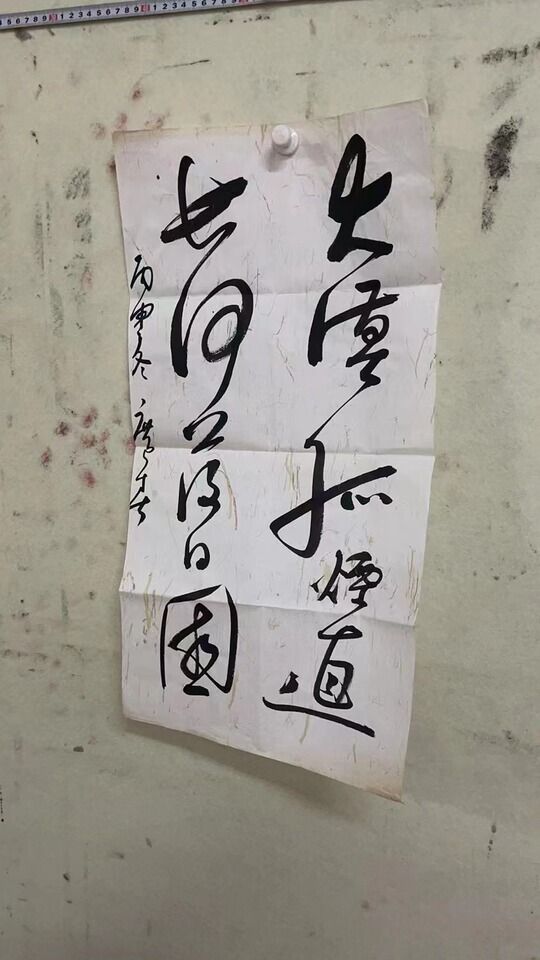 大漠孤煙直
長河落日圓
丙申冬
4 5 6 7 8 9 1 2 3 4 5 6 7 8 9 1 2 3 4 5 6 7 8 9